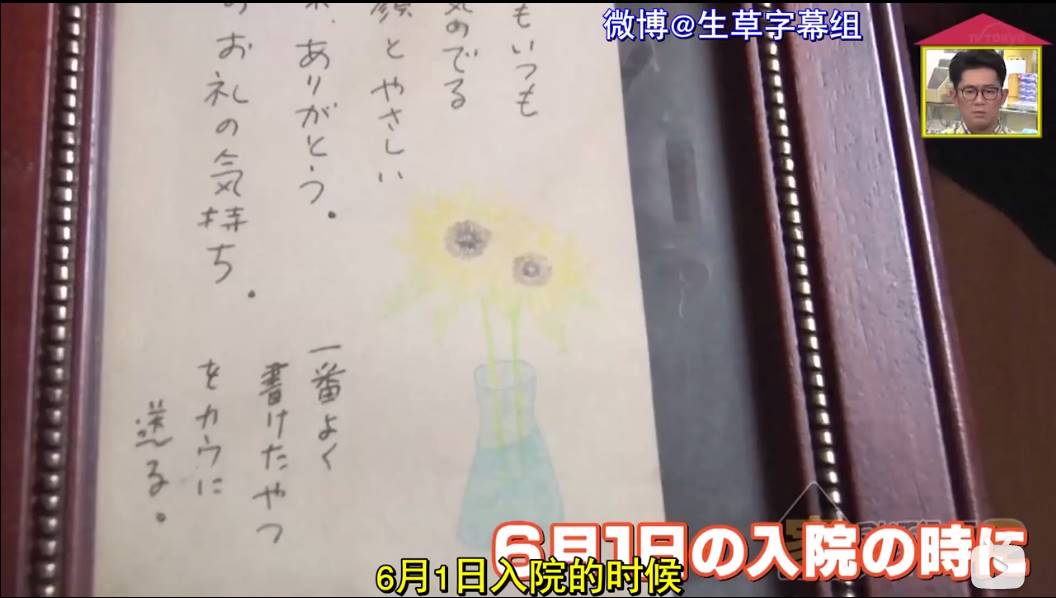 微博@生草字幕组
TV TOKYO
もいつも
気のでる
顔とやさしい
ありがとう。
お礼の気持ち。
一番よく
書けたやつ
をカウに
送る。
6月1日の入院の時に
6月1日入院的时候